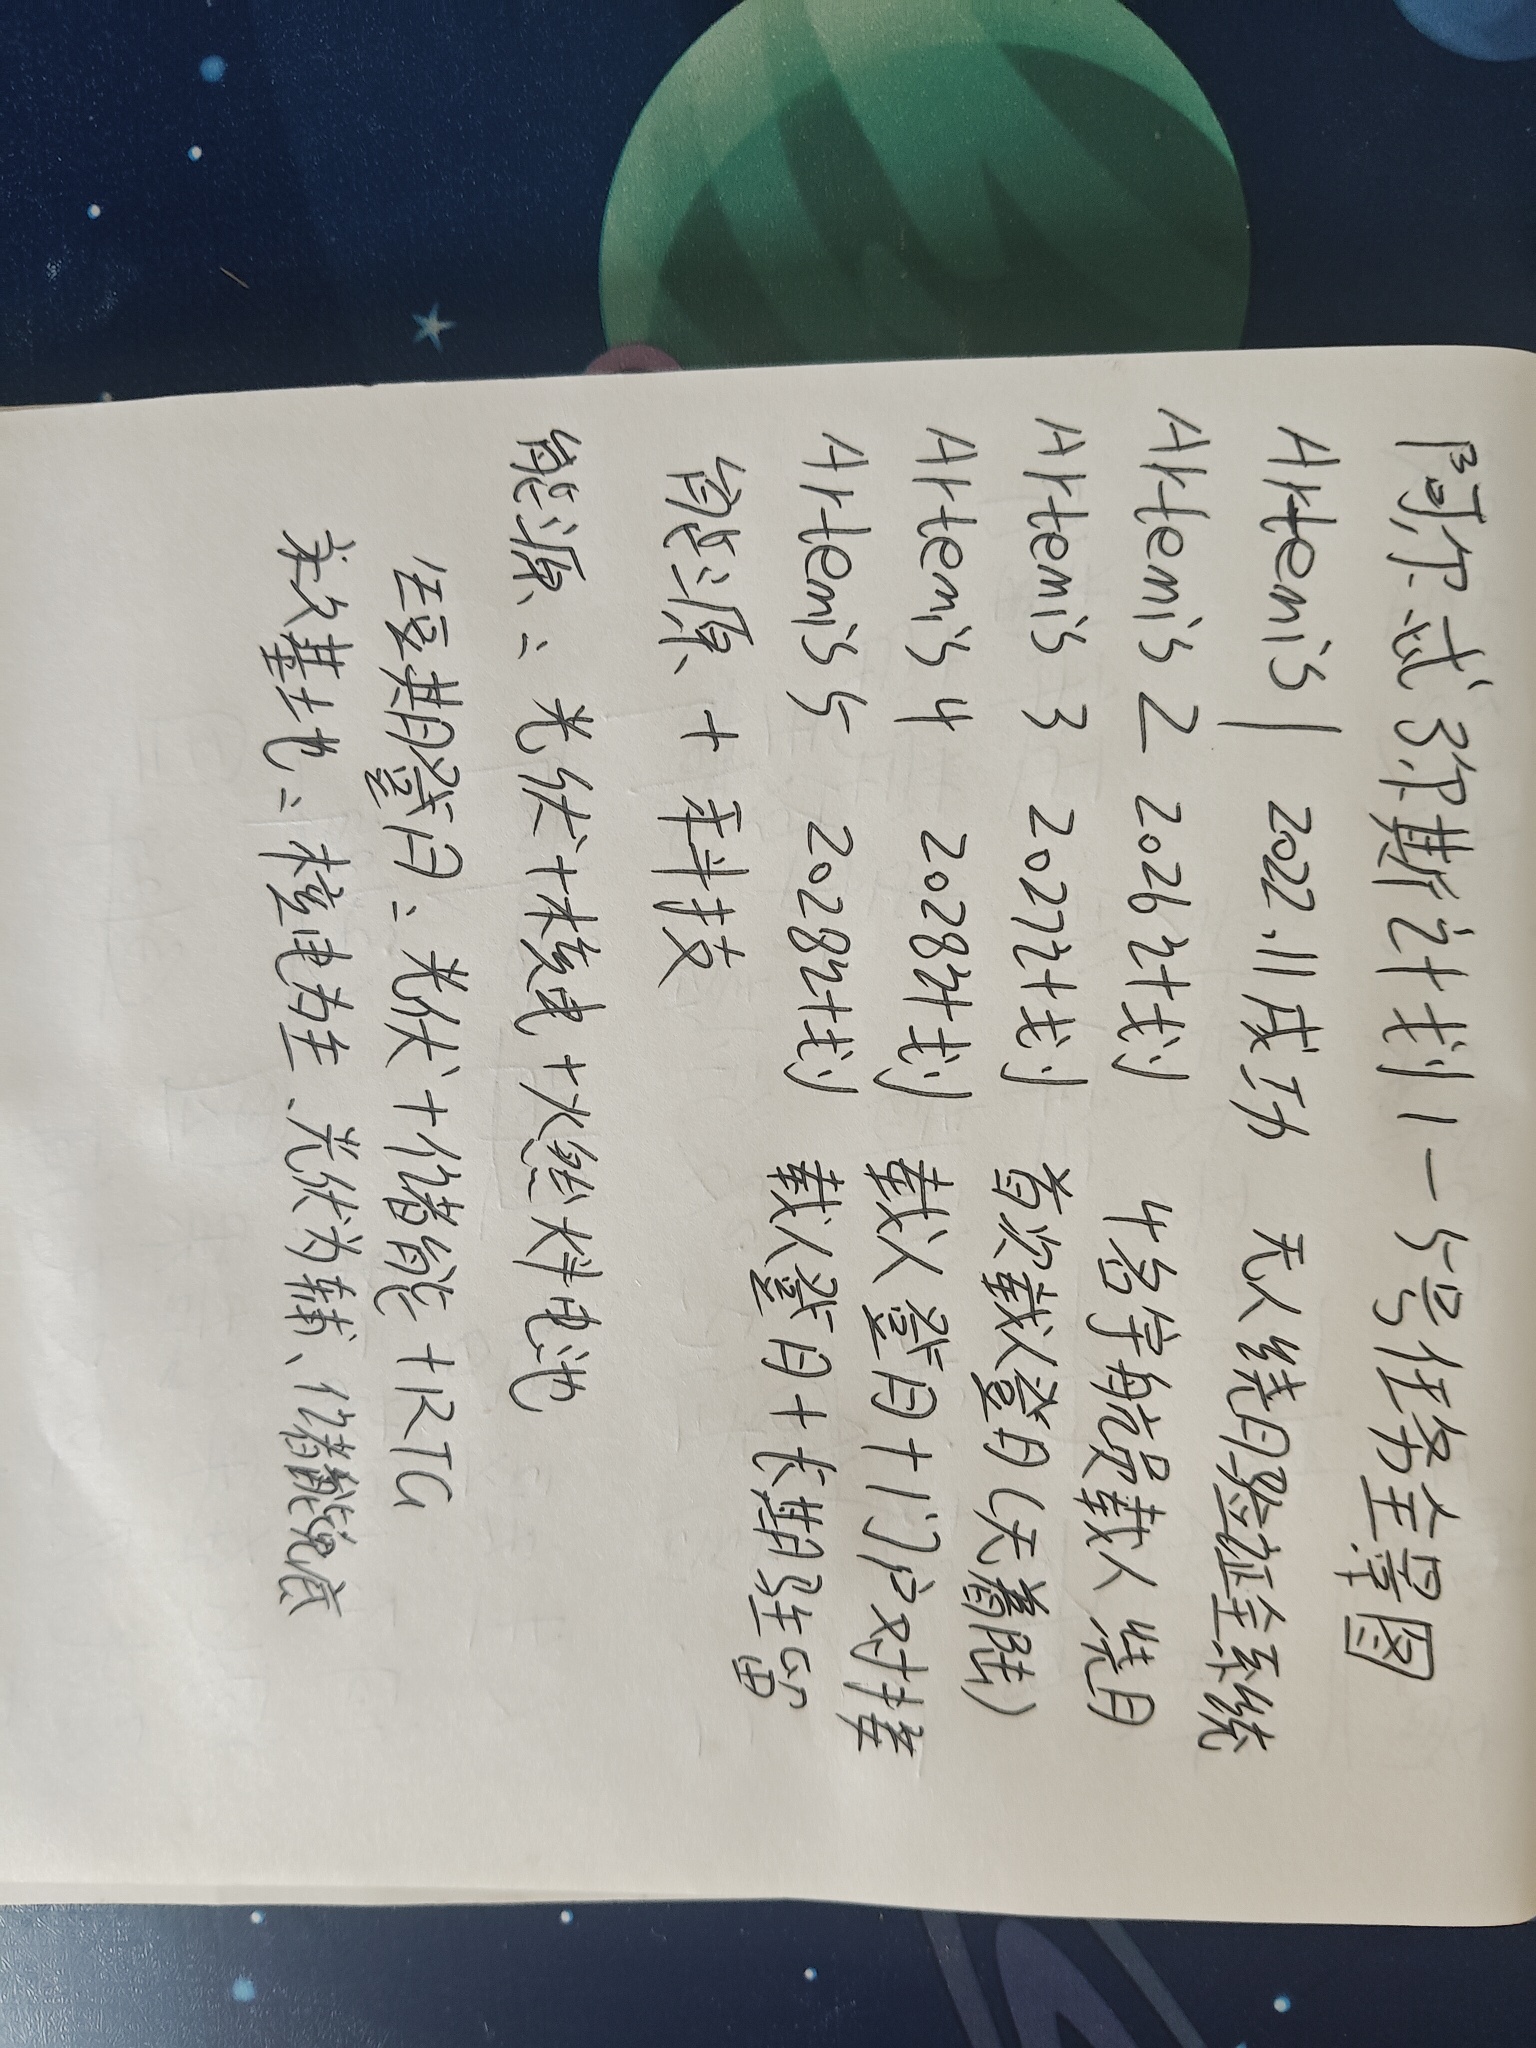 阿尔忒弥斯计划1一5号任务全景图
Artemis 1 2022.11成功 无人绕月验证全系统
Artemis 2 2026计划 4名宇航员载人绕月
Artemis 3 2027计划 首次载人登月(无着陆)
Artemis 4 2028计划 载人登月+门户对接
Artemis 5 2028计划 载人登月+长期驻留
能源+科技
能源：光伏+核电+燃料电池
短期登月：光伏+储能+RTG
永久基地：核电为主、光伏为辅、储能兜底